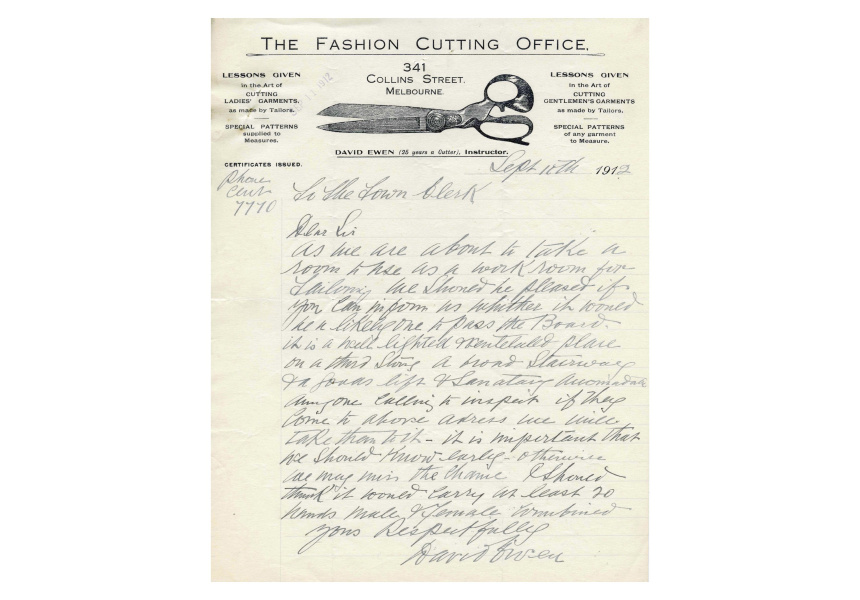 THE FASHION CUTTING OFFICE.
341
COLLINS STREET.
MELBOURNE.
LESSONS GIVEN
in the Art of
CUTTING
LADIES' GARMENTS.
as made by Tailors.
SPECIAL PATTERNS
supplied to
Measures.
CERTIFICATES ISSUED.
LESSONS GIVEN
in the Art of
CUTTING
GENTLEMEN'S GARMENTS
as made by Tailors.
SPECIAL PATTERNS
of any garment
to Measure.
DAVID EWEN (25 years a Cutter), Instructor.
Sept 10th 1912
Phone
Cent
7770
To The Town Clerk
Dear Sir
As we are about to take a
room to use as a work room for
Tailoring we should be pleased if
you can inform us whether it would
be a likely one to pass the Board.
it is a well lighted & place
on a third a broad Stairway
& a lift & Sanatary
anyone calling to inspect if they
come to above adress we will
take them to it - it is important that
we should know early - otherwise
we may miss the chance I should
think it would carry at least 20
hands male & female combined
yours Respectfully
David Ewen